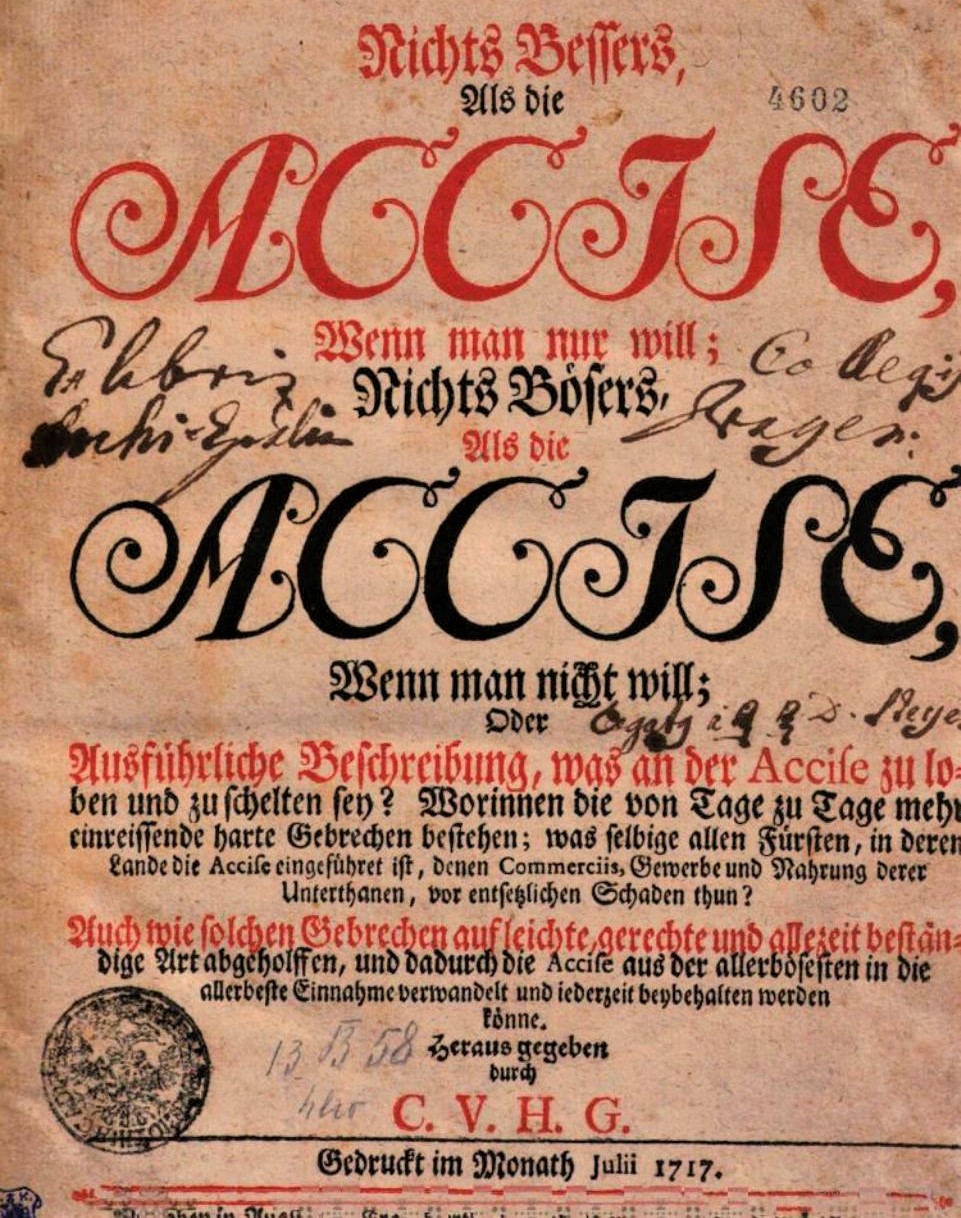 Nichts Bessers,
Als die
4602
ACCISE,
Wenn man nur will;
Nichts Bösers,
Als die
ACCISE,
Wenn man nicht will;
Oder
Ausführliche Beschreibung, was an der Accise zu lo=
ben und zu schelten sey? Worinnen die von Tage zu Tage mehr
einreissende harte Gebrechen bestehen; was selbige allen Fürsten, in deren
Lande die Accise eingeführet ist, denen Commerciis, Gewerbe und Nahrung derer
Unterthanen, vor entsetzlichen Schaden thun?
Auch wie solchen Gebrechen auf leichte, gerechte und allezeit bestän=
dige Art abgeholffen, und dadurch die Accise aus der allerbösesten in die
allerbeste Einnahme verwandelt und iederzeit beybehalten werden
könne.
13 B 58
Heraus gegeben
durch
C. V. H. G.
Gedruckt im Monath Julii 1717.